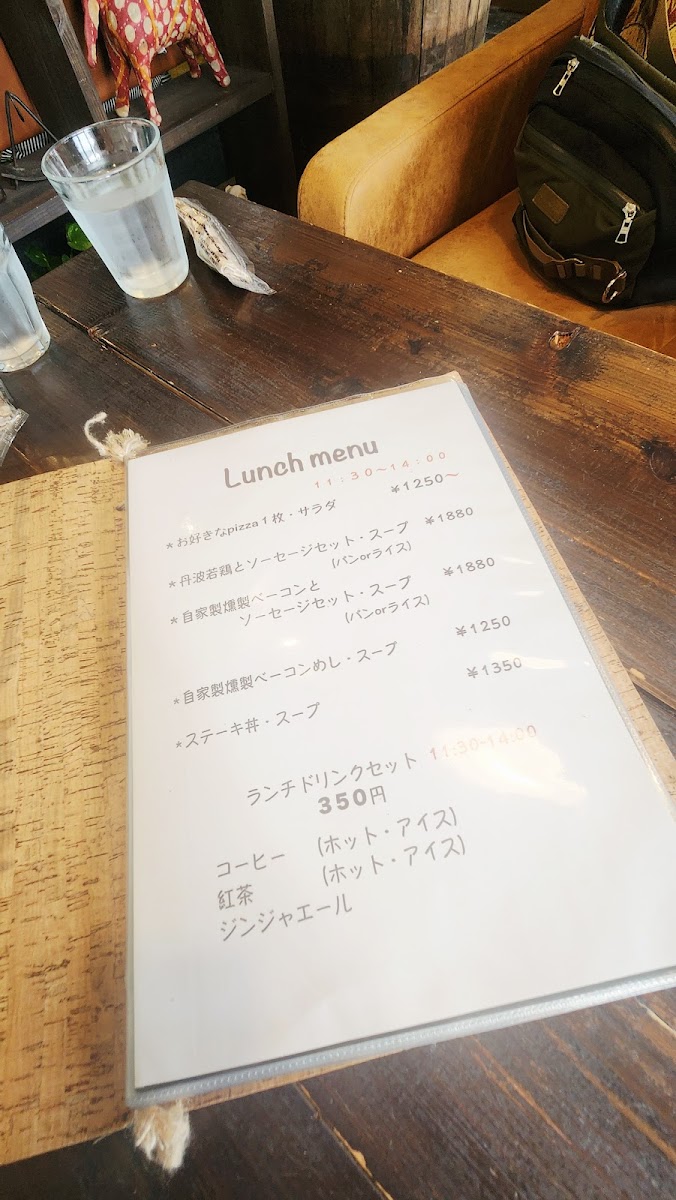 Lunch menu
11:30~14:00
*お好きなpizza1枚・サラダ ¥1250~
*丹波若鶏とソーセージセット・スープ ¥1880
(パンorライス)
*自家製燻製ベーコンと
ソーセージセット・スープ ¥1880
(パンorライス)
*自家製燻製ベーコンめし・スープ ¥1250
*ステーキ丼・スープ ¥1350
ランチドリンクセット 11:30-14:00
350円
コーヒー (ホット・アイス)
紅茶 (ホット・アイス)
ジンジャエール